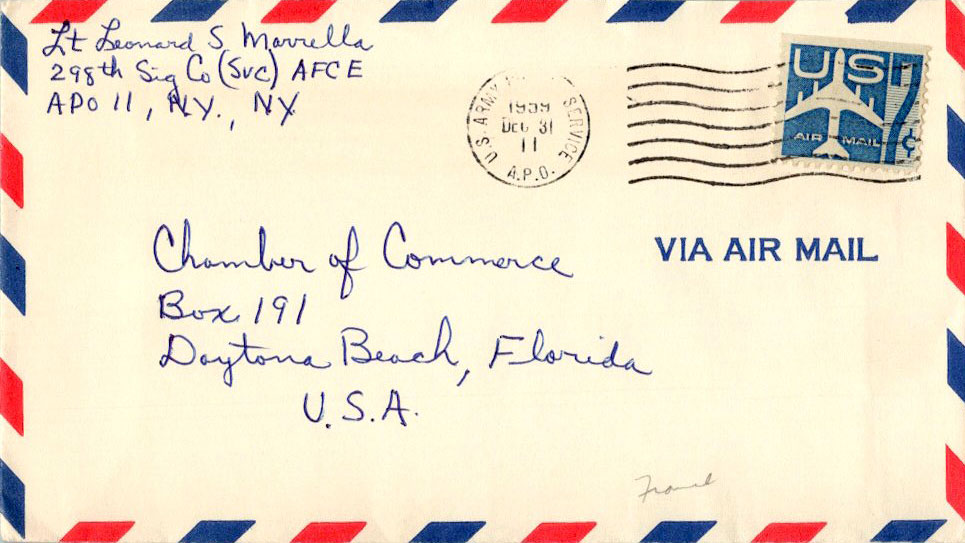 Lt Leonard S. Marrella
298th Sig Co (Svc) AFCE
APO 11, NY., NY
U.S. ARMY SERVICE
1959
DEC 31
11
A.P.O.
US
7¢
AIR MAIL
VIA AIR MAIL
Chamber of Commerce
Box 191
Daytona Beach, Florida
U.S.A.